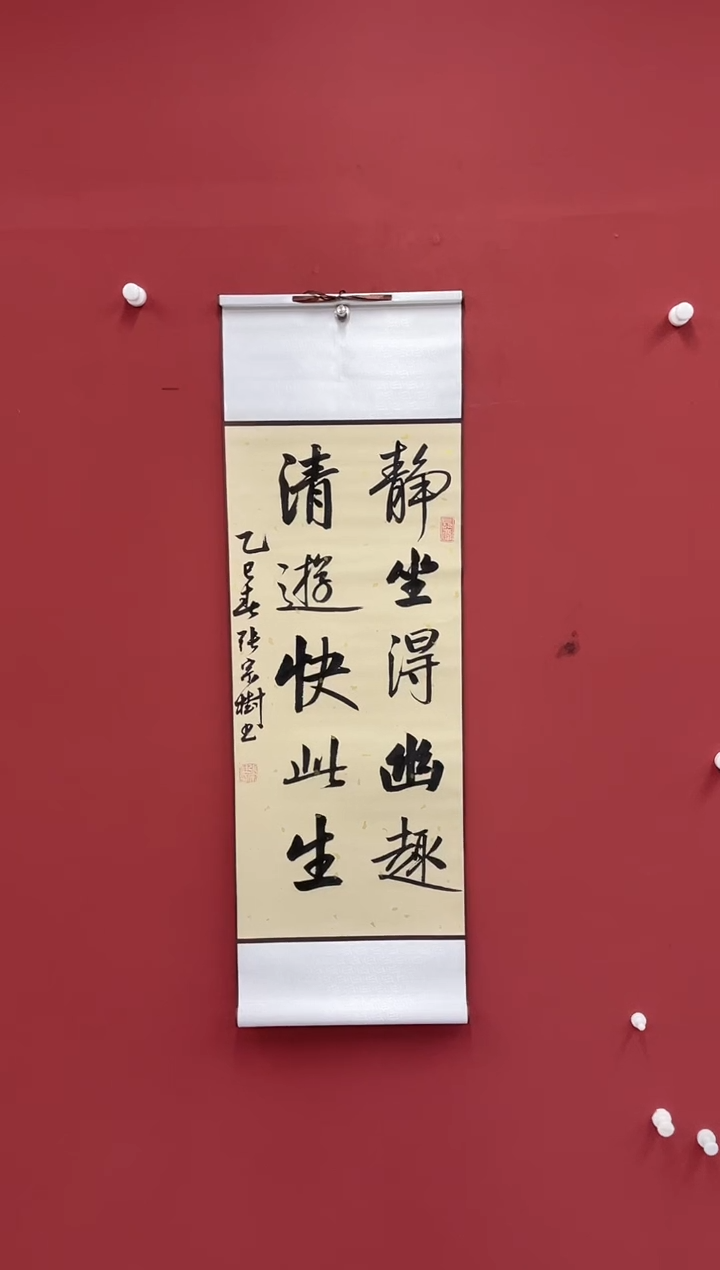 静坐得幽趣
清遊快此生
乙巳春張宗樹书